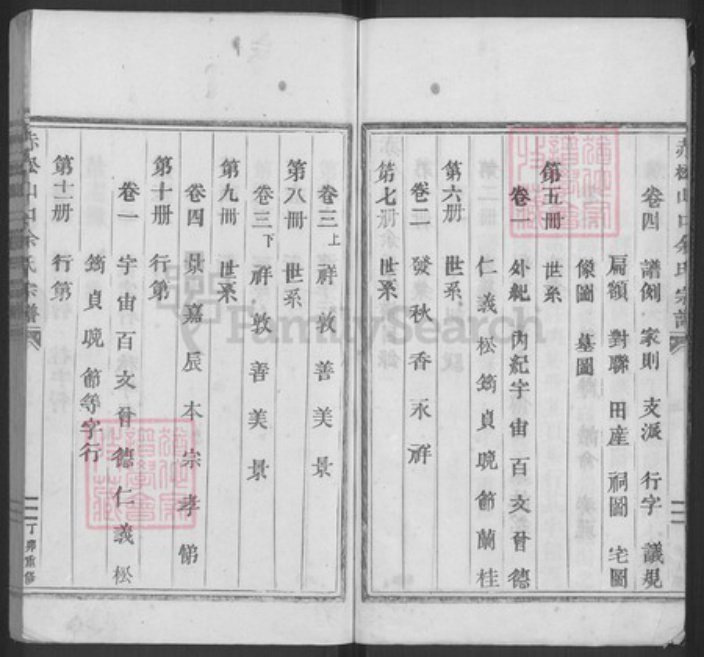 赤松山口余氏宗譜
卷四 譜例 家則 支派 行字 議規
扁額 對聯 田産 祠圖 宅圖
像圖 墓圖
第五冊 世系
卷一 外紀 內紀 宇宙百文晉德
仁義松筠貞晚節蘭桂
第六冊 世系
卷二 發秋香永祥
第七冊 世系
卷三上 祥敦善美景
第八冊 世系
卷三下 祥敦善美景
第九冊 世系
卷四 景嘉辰本宗孝悌
第十冊 行第
卷一 宇宙百文晉德仁義松
筠貞晚節等字行
第十一冊 行第
赤松山口余氏宗譜
二
丁卯重修
FamilySearch